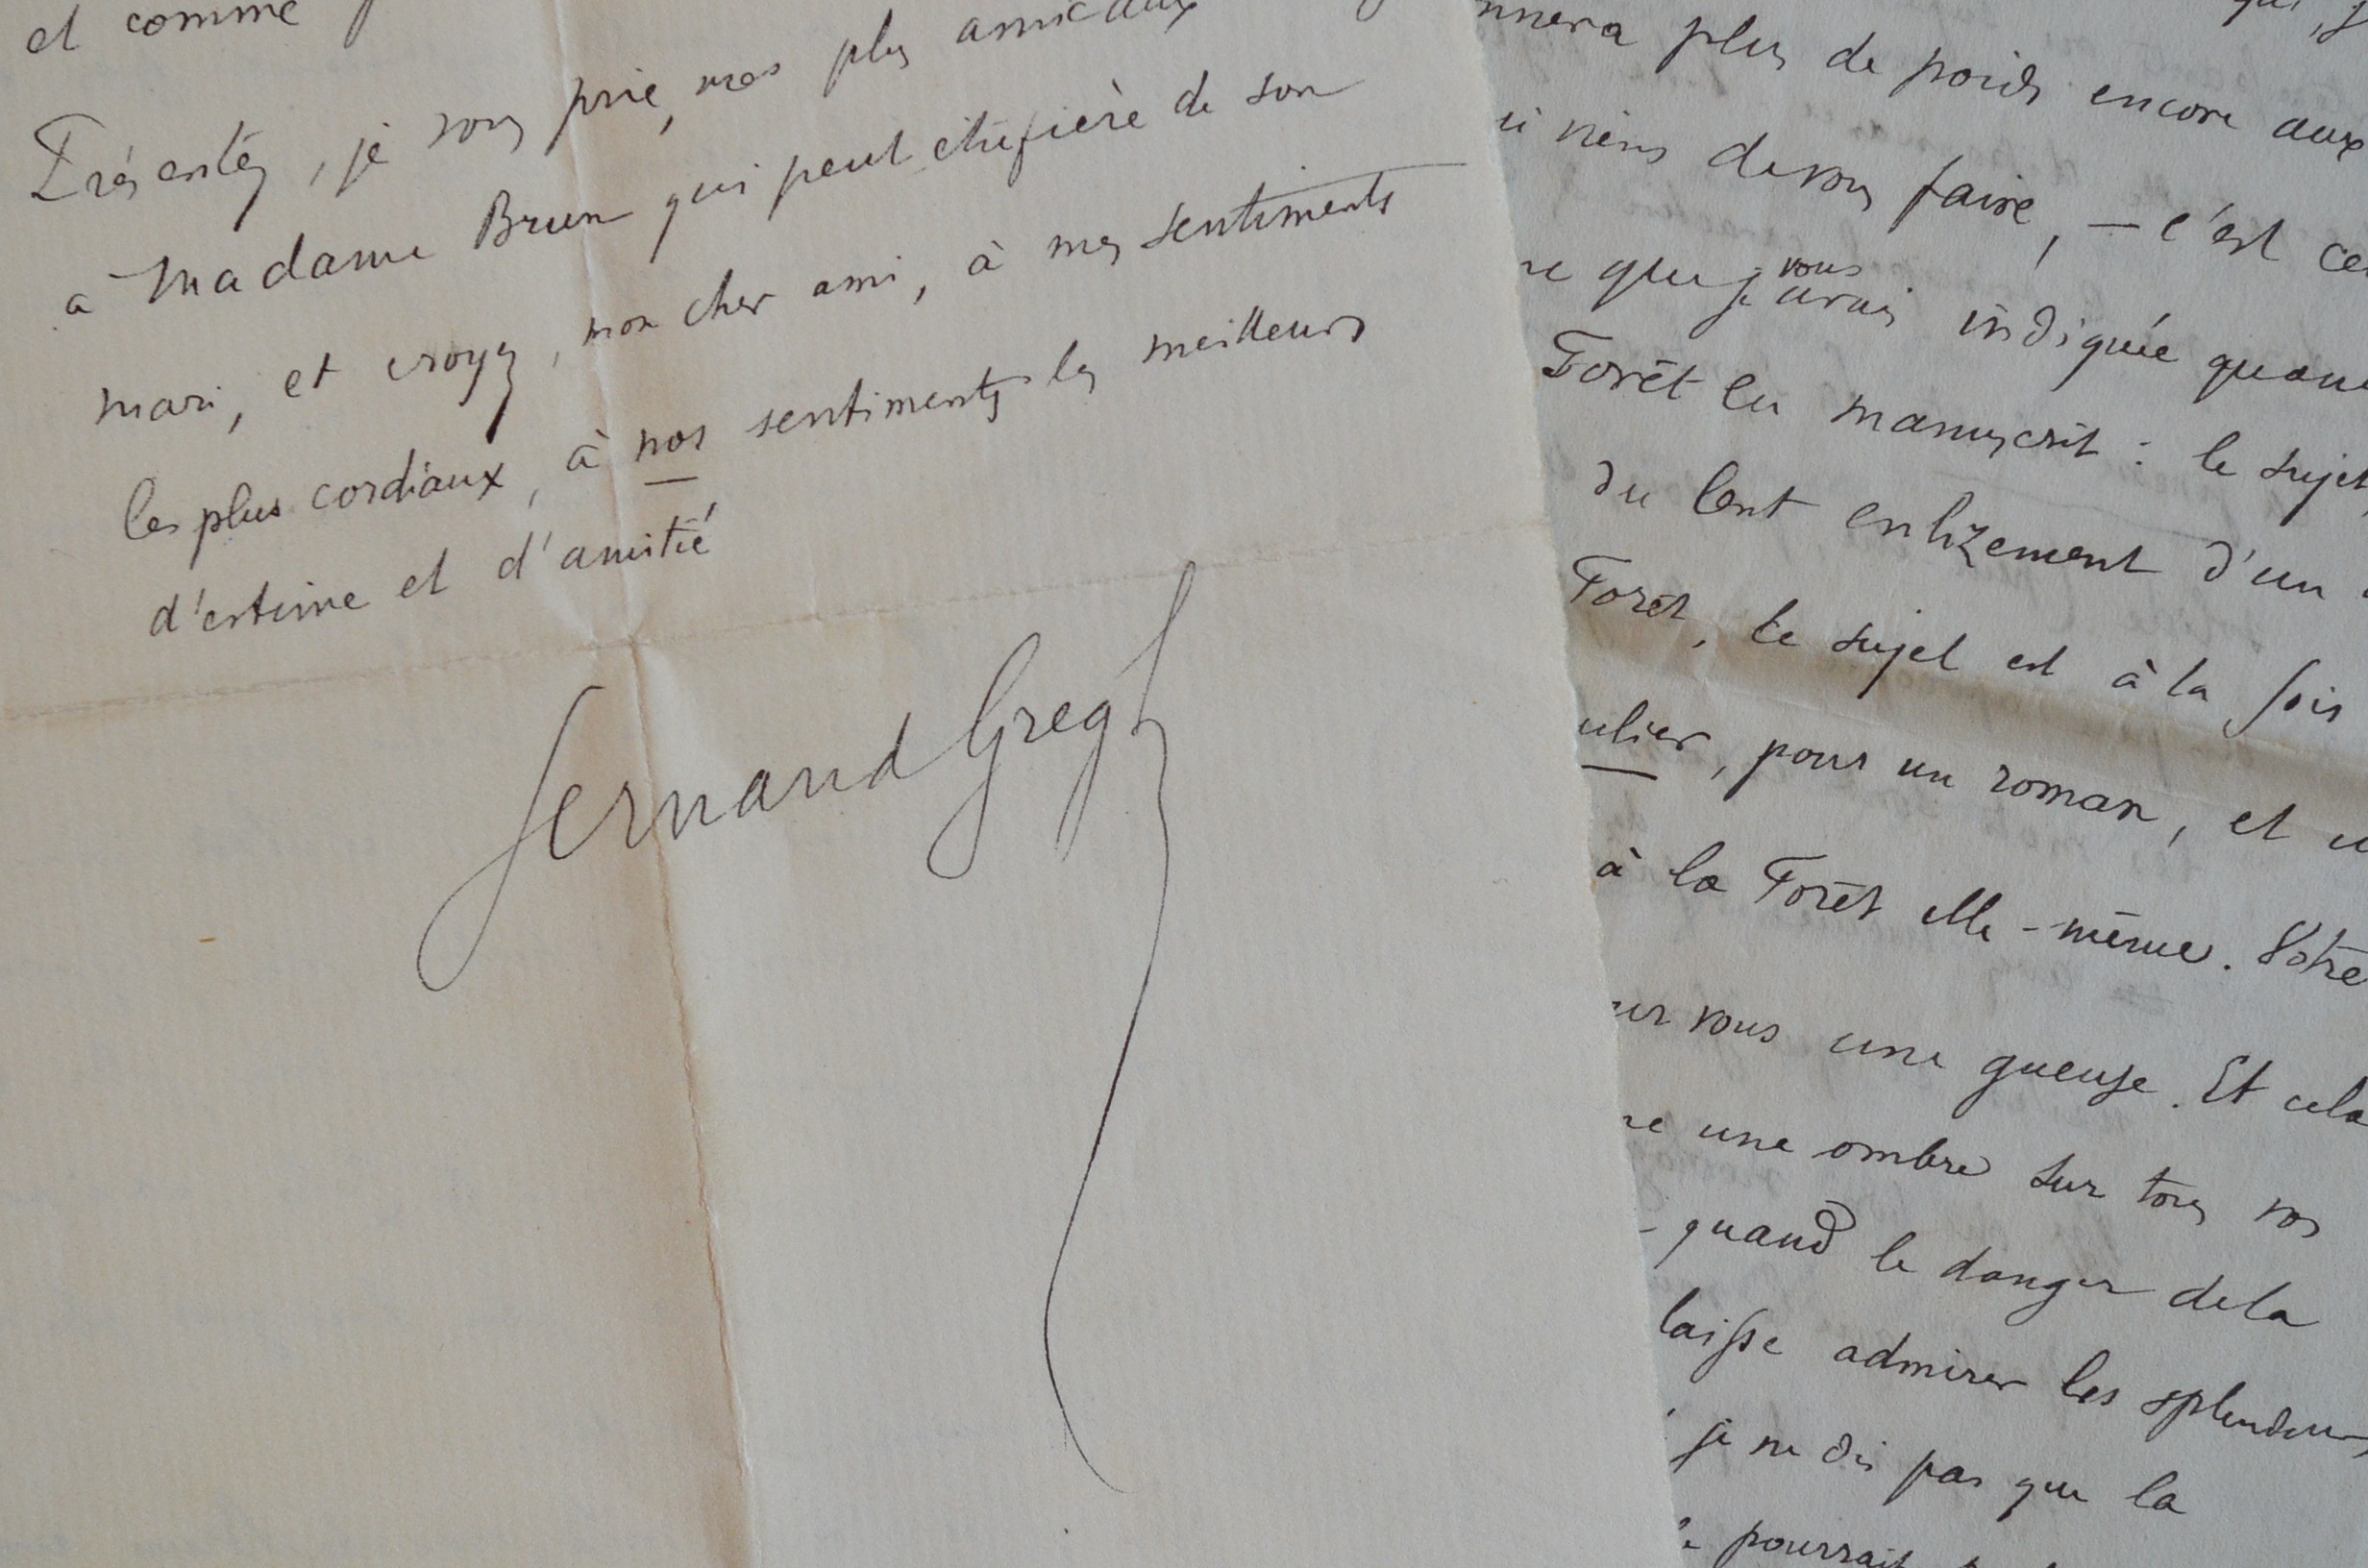 et comme
Présentez, je vous prie, mes plus amicaux
à Madame Brun qui peut être fière de son
mari, et croyez, mon cher ami, à mes sentiments
les plus cordiaux, à nos sentiments les meilleurs
d'estime et d'amitié
Fernand Gregh
plus de poids encore aux
viens de vous faire, — c'est
que je vous avais indiquée
Forêt en manuscrit : le sujet,
du lent enlizement d'un
Forêt, le sujet est à la fois
ulier, pour un roman, et
à la Forêt elle-même. Votre
vous une gueuse. Et cela
une ombre sur tous vos
- quand le danger de la
laisse admirer les splendeurs,
je ne dis pas que la
pourrait